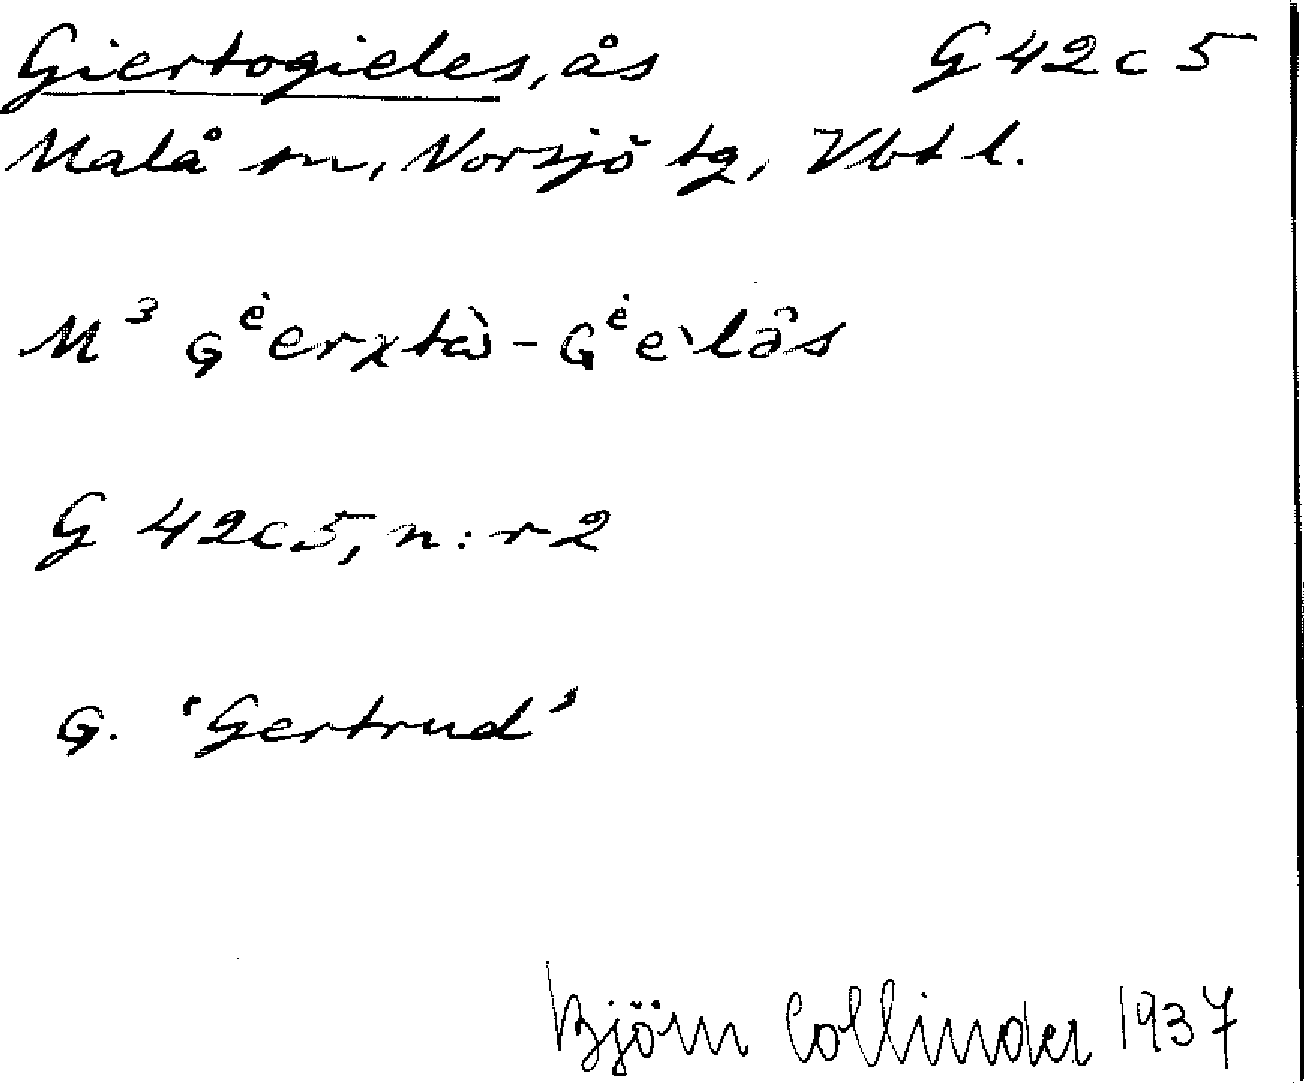 Giertogieles, ås G 42 c 5
Malå sn, Norsjö tg, Vbt l.
M³ Gᵉ̇erχtà̀-Gᵉ̇e`lôs
G 42c5, n:r 2
G. 'Gertrud'
Björn Collinder 1937